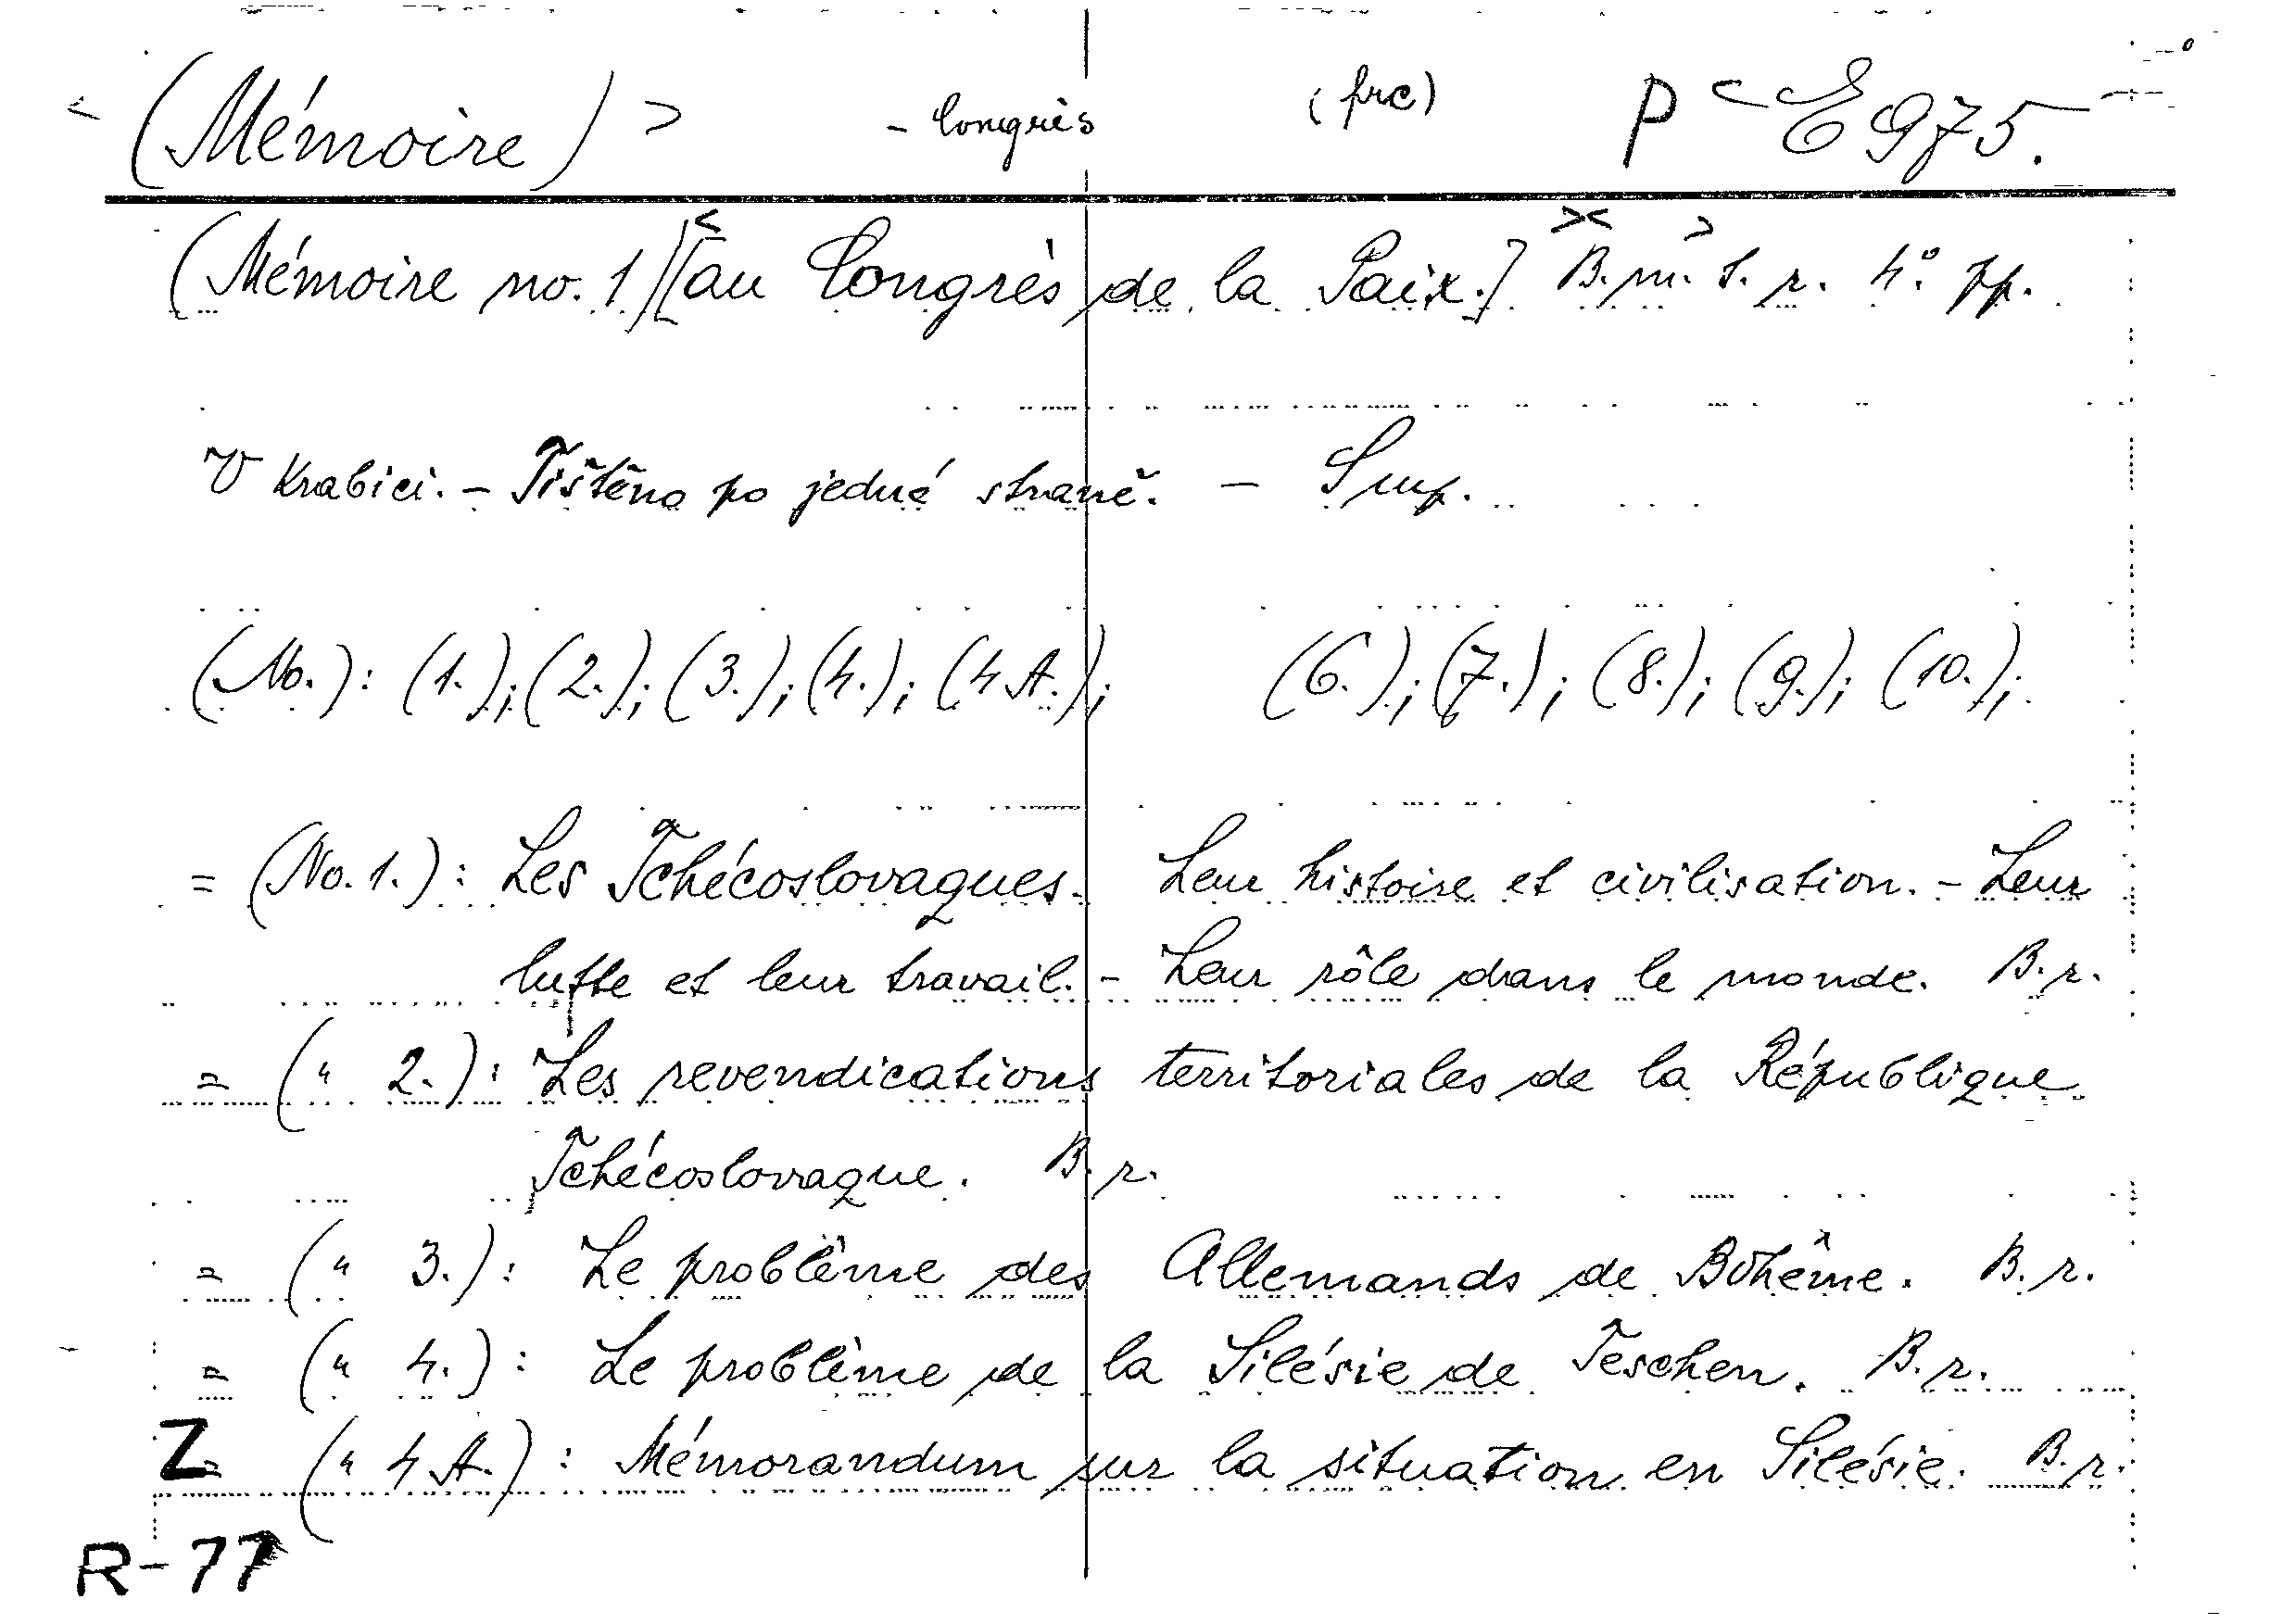 < (Mémoire) > - Congrès (frc) P < E 975.
(Mémoire no. 1)[<au Congrès de la Paix.] >< B. m. > S. r. 4° pp.
V krabici. - Tištěno po jedné straně. -
(No.): (1.); (2.); (3.); (4.); (4 A.); (6.); (7.); (8.); (9.); (10.);
= (No. 1.): Les Tchécoslovaques. Leur histoire et civilisation. - Leur
lutte et leur travail. - Leur rôle dans le monde. B. r.
= (" 2.): Les revendications territoriales de la République
Tchécoslovaque. B. r.
= (" 3.): Le problème des Allemands de Bohême. B. r.
= (" 4.): Le problème de la Silésie de Teschen. B. r.
Z = (" 4 A.): Mémorandum sur la situation en Silésie. B. r.
R-77